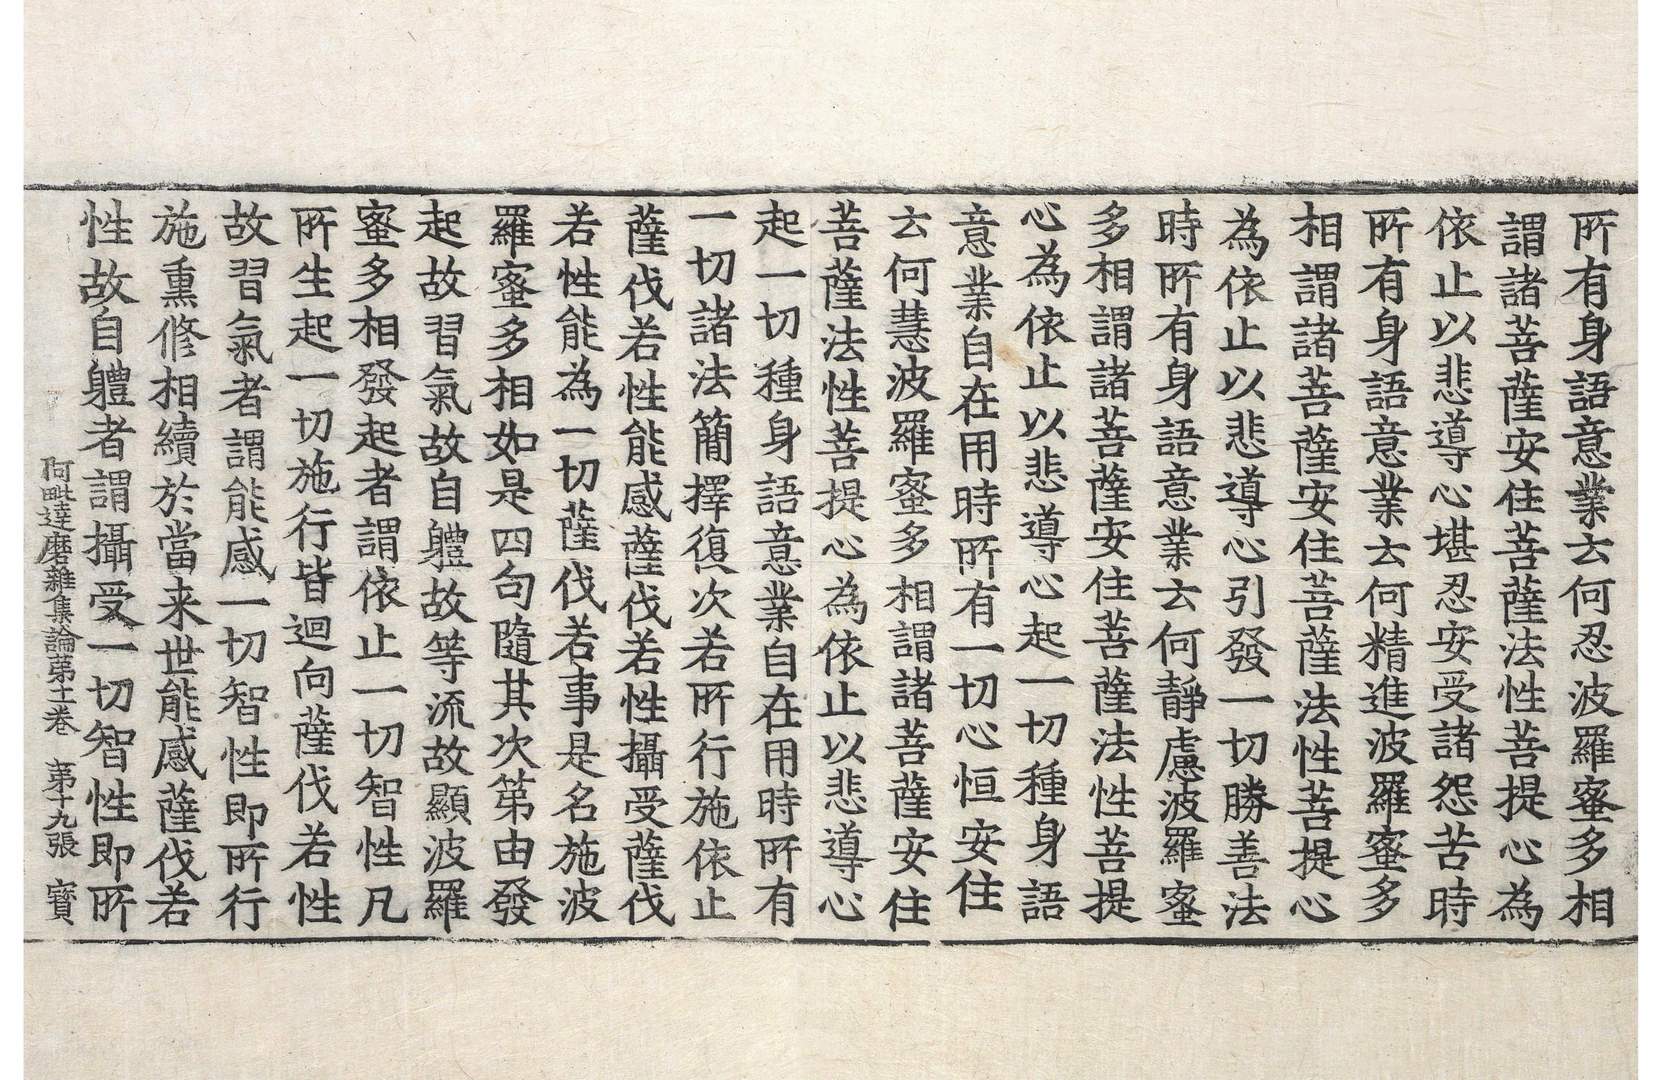 所有身語意業云何忍波羅蜜多相
謂諸菩薩安住菩薩法性菩提心為
依止以悲導心堪忍安受諸怨苦時
所有身語意業云何精進波羅蜜多
相謂諸菩薩安住菩薩法性菩提心
為依止以悲導心引發一切勝善法
時所有身語意業云何靜慮波羅蜜
多相謂諸菩薩安住菩薩法性菩提
心為依止以悲導心起一切種身語
意業自在用時所有一切心恒安住
云何慧波羅蜜多相謂諸菩薩安住
菩薩法性菩提心為依止以悲導心
起一切種身語意業自在用時所有
一切諸法簡擇復次若所行施依止
薩伐若性能感薩伐若性攝受薩伐
若性能為一切薩伐若事是名施波
羅蜜多相如是四句隨其次第由發
起故習氣故自軆故等流故顯波羅
蜜多相發起者謂依止一切智性凡
所生起一切施行皆迴向薩伐若性
故習氣者謂能感一切智性即所行
施熏修相續於當来世能感薩伐若
性故自軆者謂攝受一切智性即所
阿毗達磨雜集論第十一卷　第十九張　寳